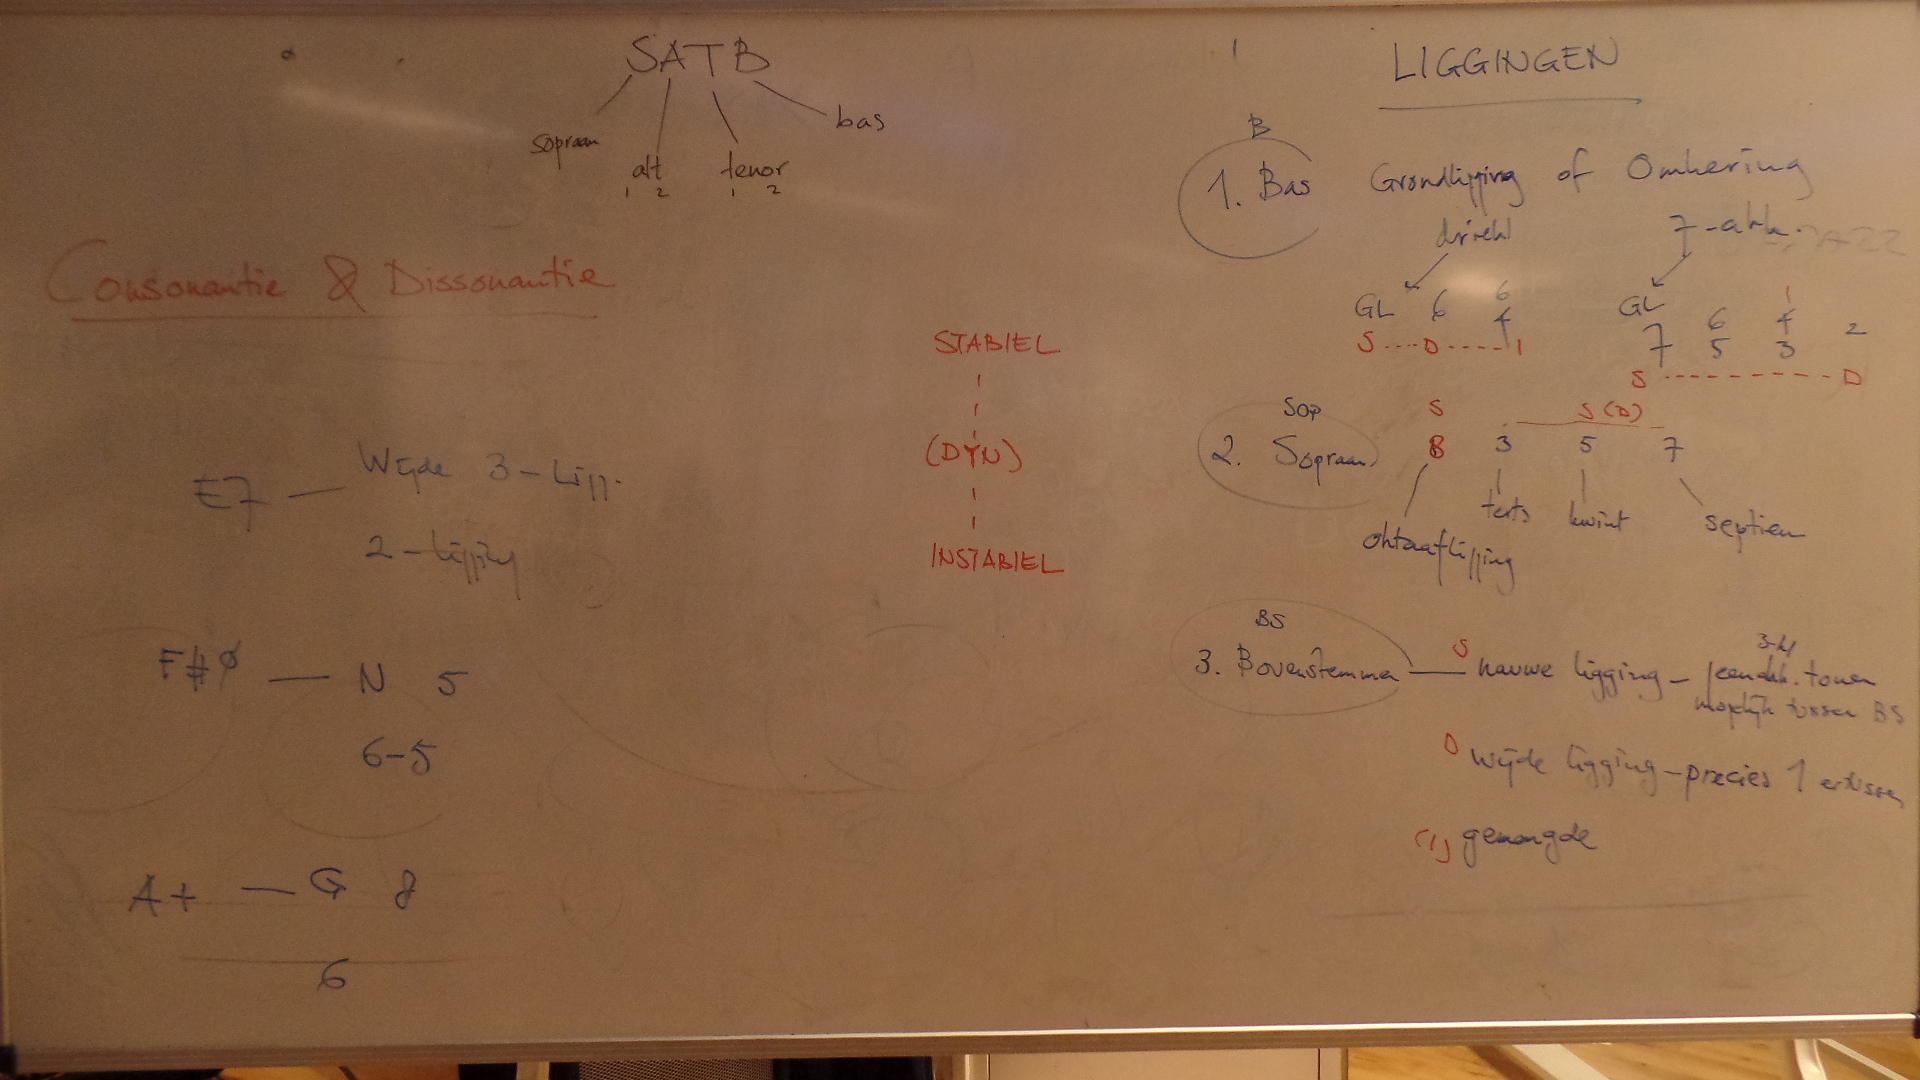 SATB
sopraan
alt
tenor
bas
1 2
1 2
Consonantie & Dissonantie
E7 — Wijde 3-Ligg.
2-ligging
F#ø — N 5
6-5
A+ — G 8
6
STABIEL
(DYN)
INSTABIEL
LIGGINGEN
B
1. Bas Grondligging of Omkering
driekl 7-akk.
JAZZ
GL 6 6
4
S....D-----I
GL
7 6 4 2
5 3
1
S--------D
Sop S S(D)
2. Sopraan B 3 5 7
oktaafligging
terts
kwint
septiem
BS
3. Bovenstemmen — S nauwe ligging - geen akk. tonen
3-kl
mogelijk tussen BS
D Wijde ligging - precies 1 ertussen
(I) gemengde